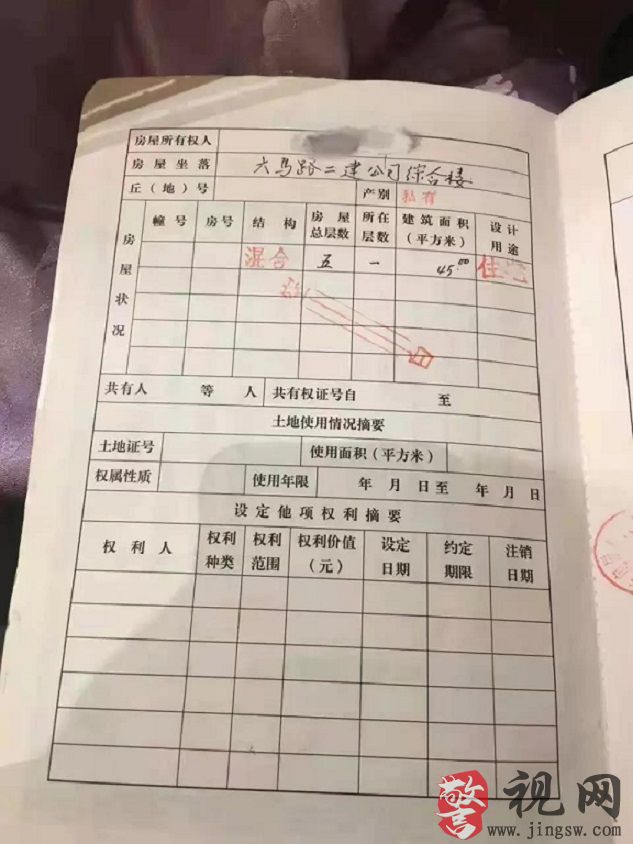 房屋所有权人
房屋坐落 六马路二建公司综合楼
丘（地）号 产别 私有
房屋状况
幢号 房号 结构 房屋总层数 所在层数 建筑面积（平方米） 设计用途
混合 五 一 45.00 住宅
共有人 等 人 共有权证号自 至
土地使用情况摘要
土地证号 使用面积（平方米）
权属性质 使用年限 年 月 日至 年 月 日
设定他项权利摘要
权利人 权利种类 权利范围 权利价值（元） 设定日期 约定期限 注销日期
警视网
www.jingsw.com